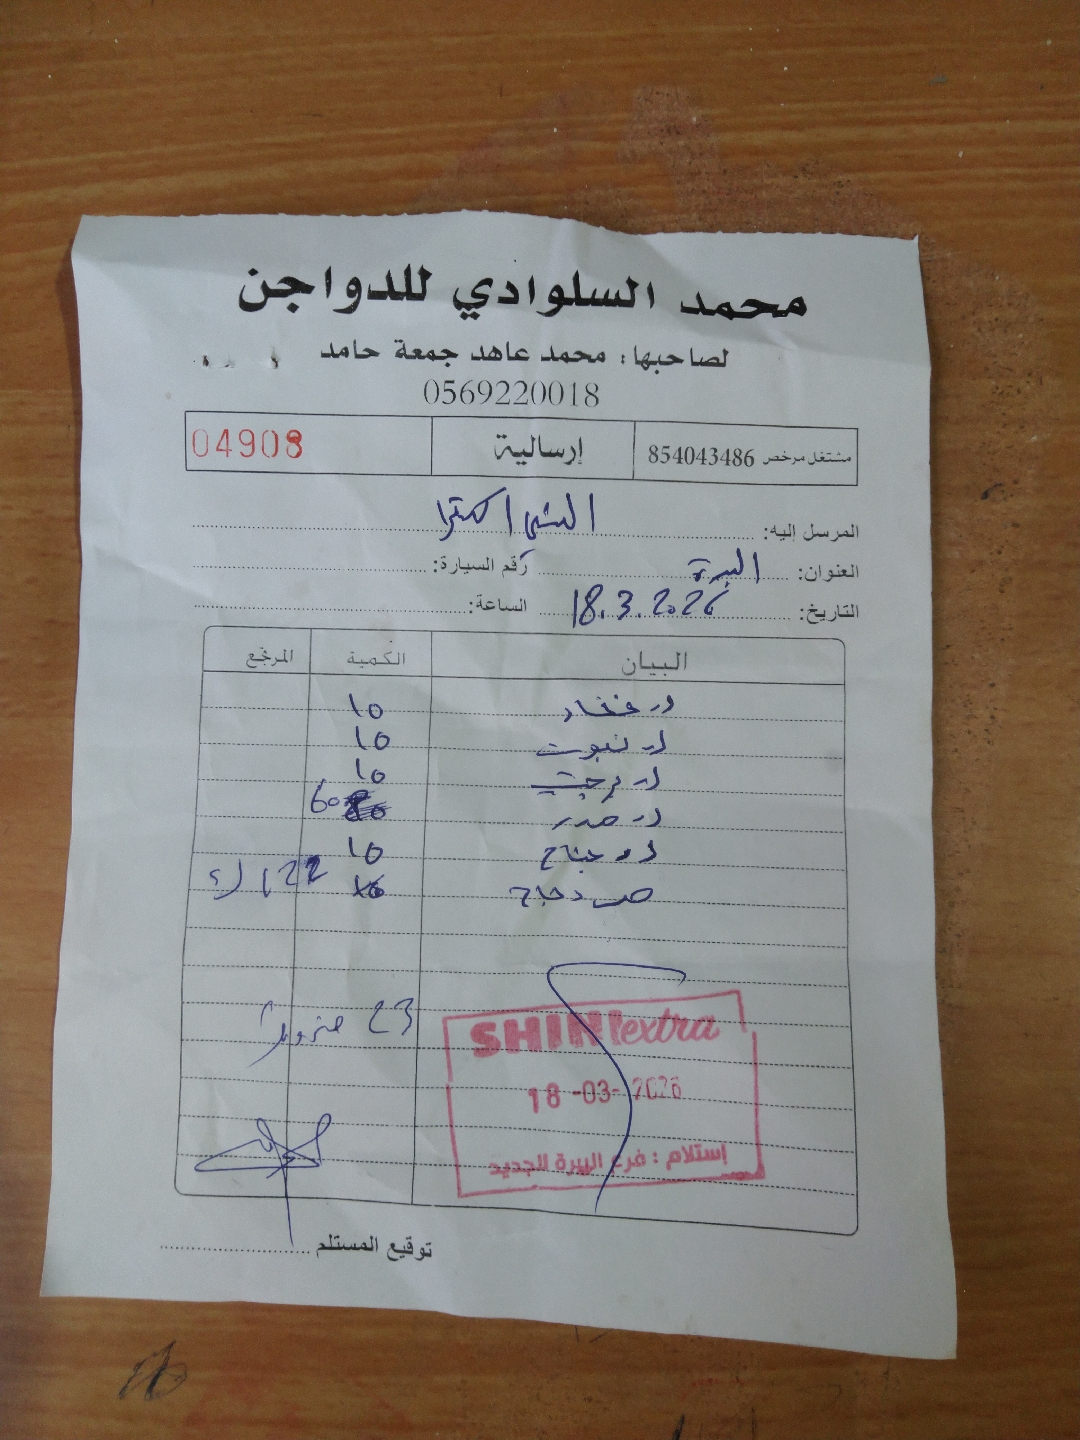 محمد السلوادي للدواجن
لصاحبها: محمد عاهد جمعة حامد
0569220018
مشتغل مرخص 854043486 إرسالية 04908
المرسل إليه: الشني اكسترا
العنوان: البيرة رقم السيارة:
التاريخ: 18.3.2026 الساعة:
البيان الكمية المرتجع
فخاد 10
10
10
صدر 60
جناح 10
دجاج 122
23
SHINI extra
18-03-2026
إستلام : فرع البيرة الجديد
توقيع المستلم